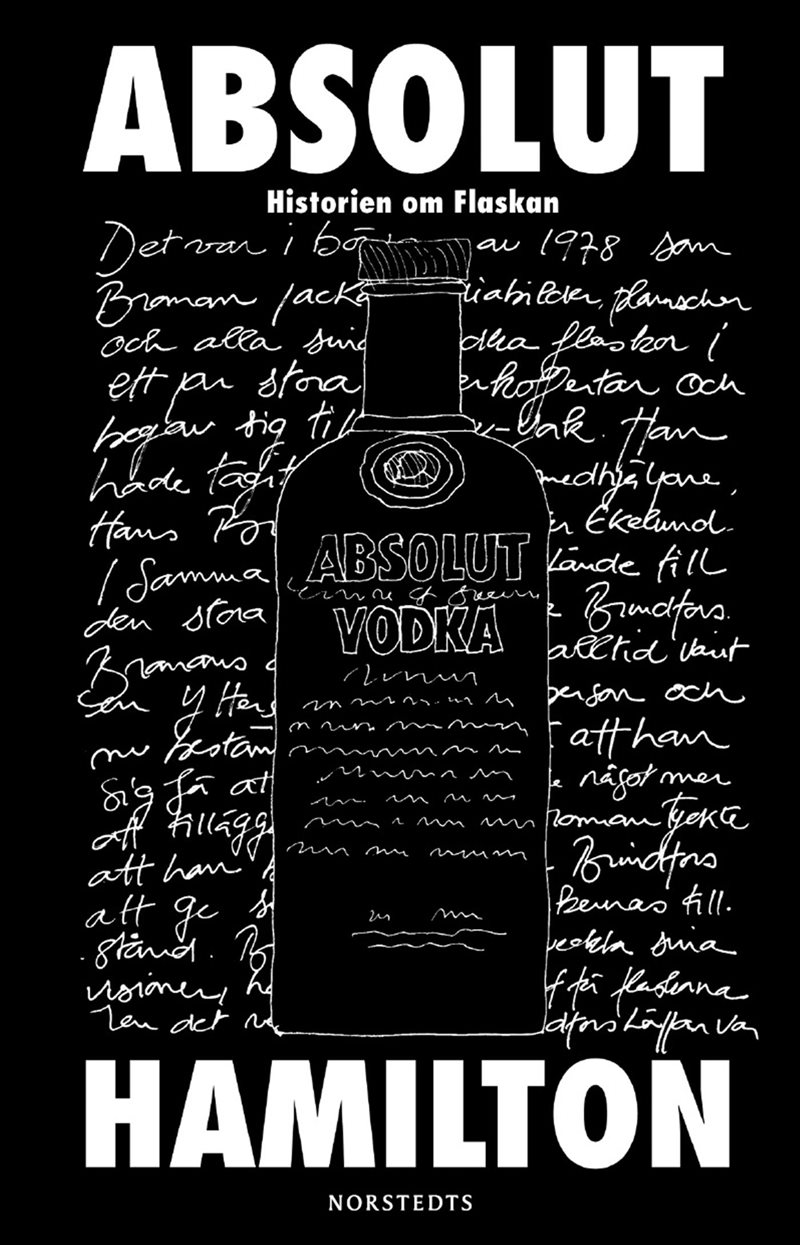 ABSOLUT
Historien om Flaskan
Det var i bö av 1978 som
Broman packa diabilder, planscher
och alla sina dka flaskor i
ett par stora erkoffertar och
begav sig til v-vak. Han
hade tagit medhjälpare,
Hans Br Ekelund.
I samma lände till
den stora Brindfors.
Bromans alltid varit
en ytters person och
nu bestäm att han
sig få at något mer
att tillägg roman tyckte
att han Brindfors
att ge s kernas till-
stånd. B veckla sina
visioner, h få flaskorna
det v dfors
ABSOLUT
VODKA
HAMILTON
NORSTEDTS